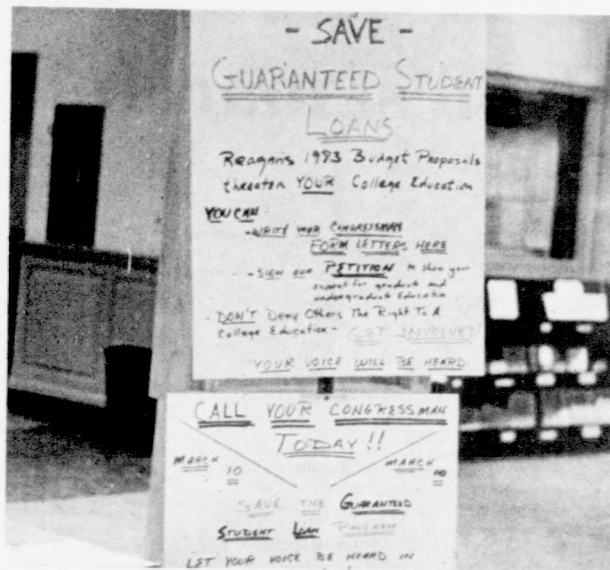 - SAVE -
GUARANTEED STUDENT
LOANS
Reagan's 1983 Budget Proposals
threaten YOUR College Education
YOU CAN
- WRITE YOUR CONGRESSMAN
FORM LETTERS HERE
- SIGN OUR PETITION to show your
support for graduate and
undergraduate Education
- DON'T Deny Others The Right To A
College Education - GET INVOLVED!
YOUR VOICE WILL BE HEARD
CALL YOUR CONGRESSMAN
TODAY!!
MARCH 10 MARCH 10
SAVE THE GUARANTEED
STUDENT LOAN PROGRAM
LET YOUR VOICE BE HEARD IN